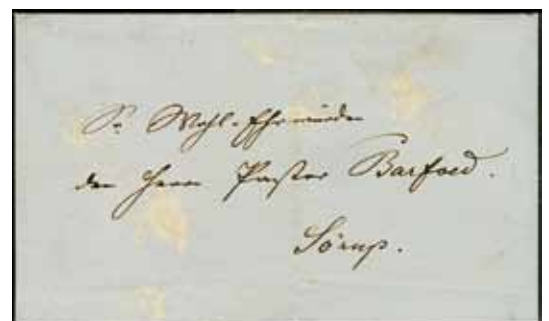 Sr Wohl-Ehrwürden
den Herrn Pastor Barfoed.
Sörup.